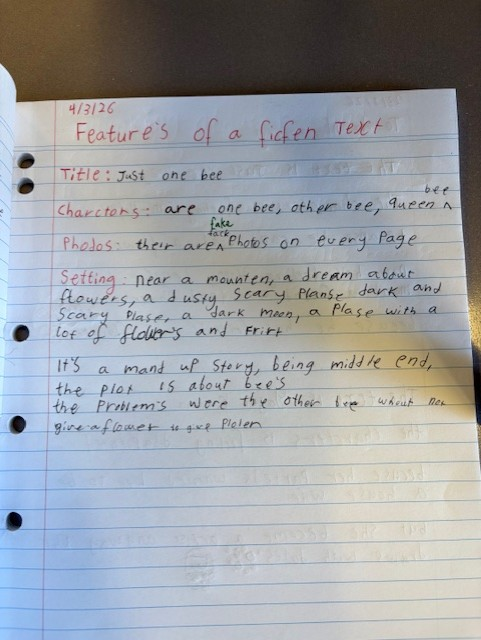 4/3/26
Feature's of a ficfen Text
Title: Just one bee
bee
Charctors: are one bee, other bee, queen ^
fake
Phodos: their are ^ Photos on every Page
Setting: near a mounten, a dream about
flowers, a dusty scary Planse dark and
scary Plase, a dark moon, a Plase with a
lot of flower's and Frirt
It's a mand up story, being middle end,
the plot is about bee's
the Problem's were the other bee whout not
give a flower Plolen